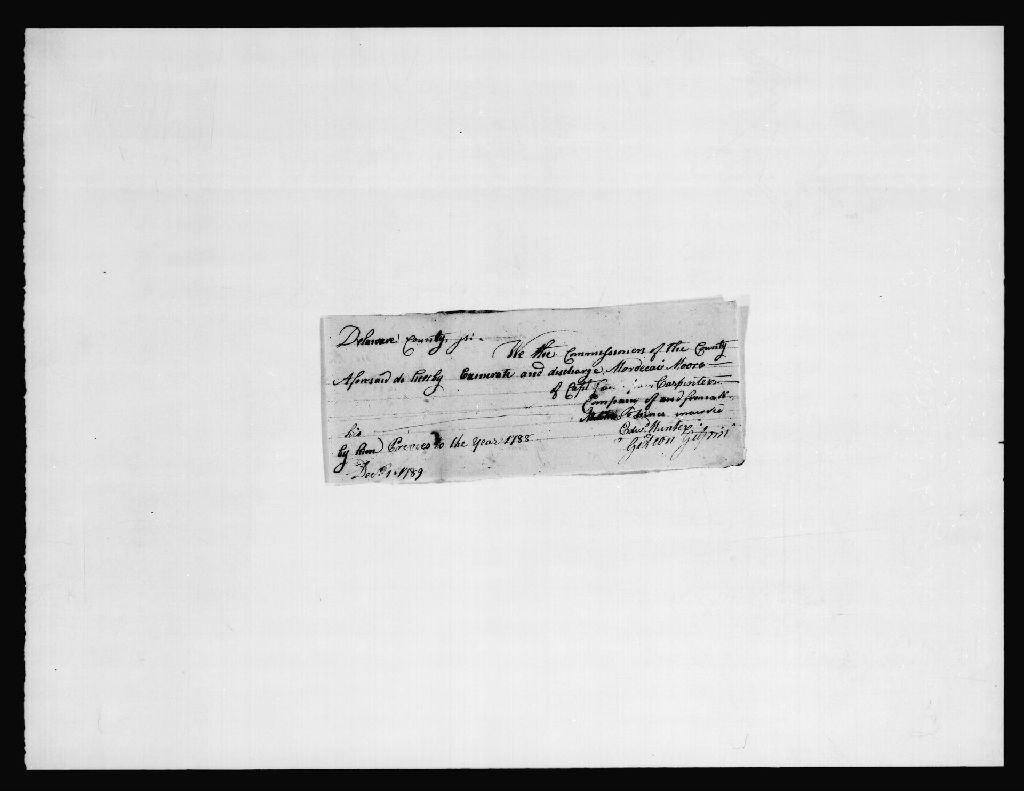 Delaware County, ss.
We the Commissioners of the County
Aforesaid do hereby Exonerate and discharge Mordecai Moore
of Capt Carpenter
Company of and from all
Fines
his
by him Previes to the Year 1788
Edwd. Hunter
Gideon Gilpin
Decr. 1. 1789